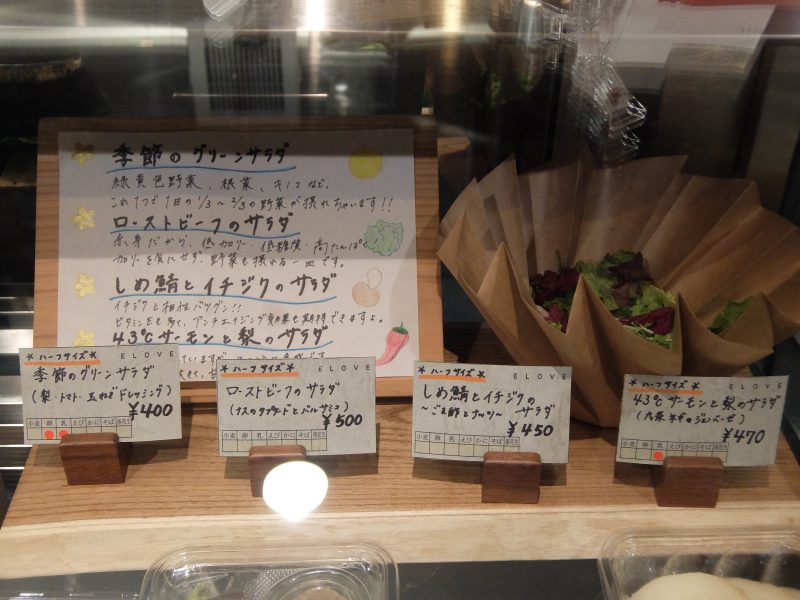 季節のグリーンサラダ
緑黄色野菜、根菜、キノコなど、
これ1つで1日の1/3〜2/3の野菜が摂れちゃいます!!
ローストビーフのサラダ
赤身だから、低カロリー・低糖質・高たんぱく!
カロリーを気にせず、野菜も摂れる一皿です。
しめ鯖とイチジクのサラダ
イチジクと相性バツグン!!
ビタミンEも多く、アンチエイジング効果も期待できますよ。
43℃サーモンと梨のサラダ
*ハーフサイズ* ELOVE
季節のグリーンサラダ
(梨・トマト・玉ねぎドレッシング)
¥400
小麦 卵 乳 えび かに そば 落花生
*ハーフサイズ* ELOVE
ローストビーフのサラダ
(ナスのタプナードとバルサミコ)
¥500
小麦 卵 乳 えび かに そば 落花生
*ハーフサイズ* ELOVE
しめ鯖とイチジクの
〜ごま酢とナッツ〜 サラダ
¥450
小麦 卵 乳 えび かに そば 落花生
*ハーフサイズ* ELOVE
43℃サーモンと梨のサラダ
(九条ネギのジェノベーゼ)
¥470
小麦 卵 乳 えび かに そば 落花生